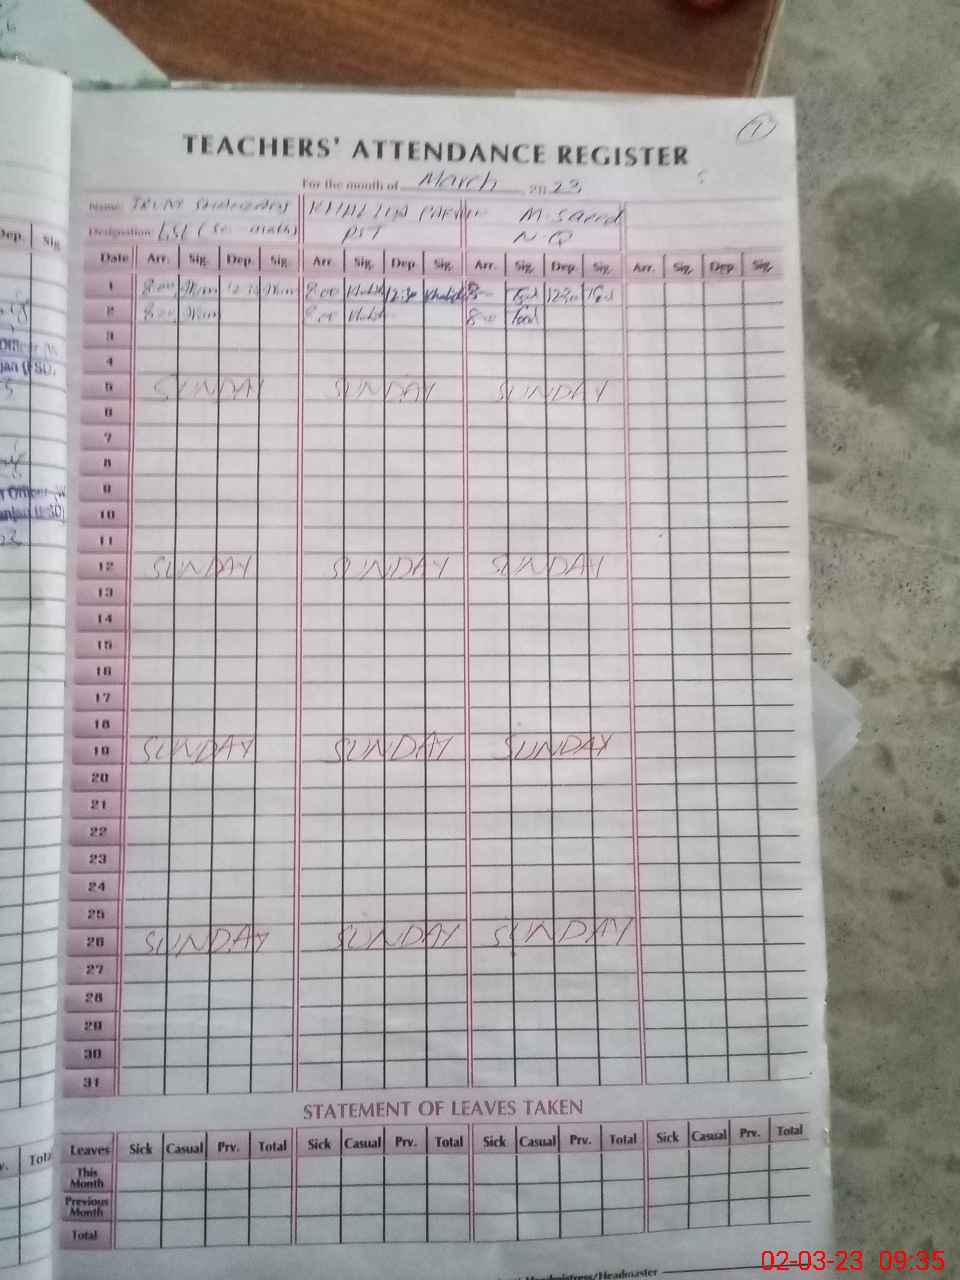 1
TEACHERS' ATTENDANCE REGISTER
For the month of March 2023
Name: KHALIDA M. Saeed
Designation: (Sc. math) PST N.Q
Date Arr. Sig. Dep. Sig. Arr. Sig. Dep. Sig. Arr. Sig. Dep. Sig. Arr. Sig. Dep. Sig.
1 8:00 8:00 12:30 12:30
2 8:00 8:00
3
4
5 SUNDAY SUNDAY SUNDAY
6
7
8
9
10
11
12 SUNDAY SUNDAY SUNDAY
13
14
15
16
17
18
19 SUNDAY SUNDAY SUNDAY
20
21
22
23
24
25
26 SUNDAY SUNDAY SUNDAY
27
28
29
30
31
STATEMENT OF LEAVES TAKEN
Leaves Sick Casual Prv. Total Sick Casual Prv. Total Sick Casual Prv. Total Sick Casual Prv. Total
This Month
Previous Month
Total
Headmistress/Headmaster
02-03-23 09:35